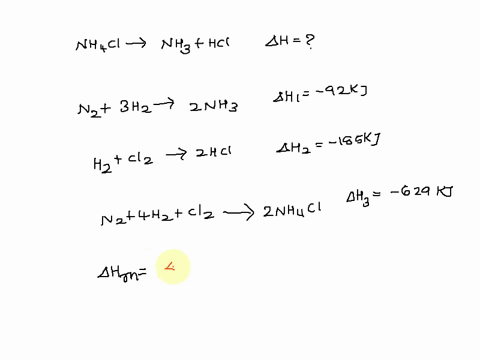 NH4Cl → NH3 + HCl ΔH = ?
N2 + 3H2 → 2NH3 ΔH1 = -92KJ
H2 + Cl2 → 2HCl ΔH2 = -185KJ
N2+4H2+Cl2 → 2NH4Cl ΔH3 = -629 KJ
ΔHrxn =